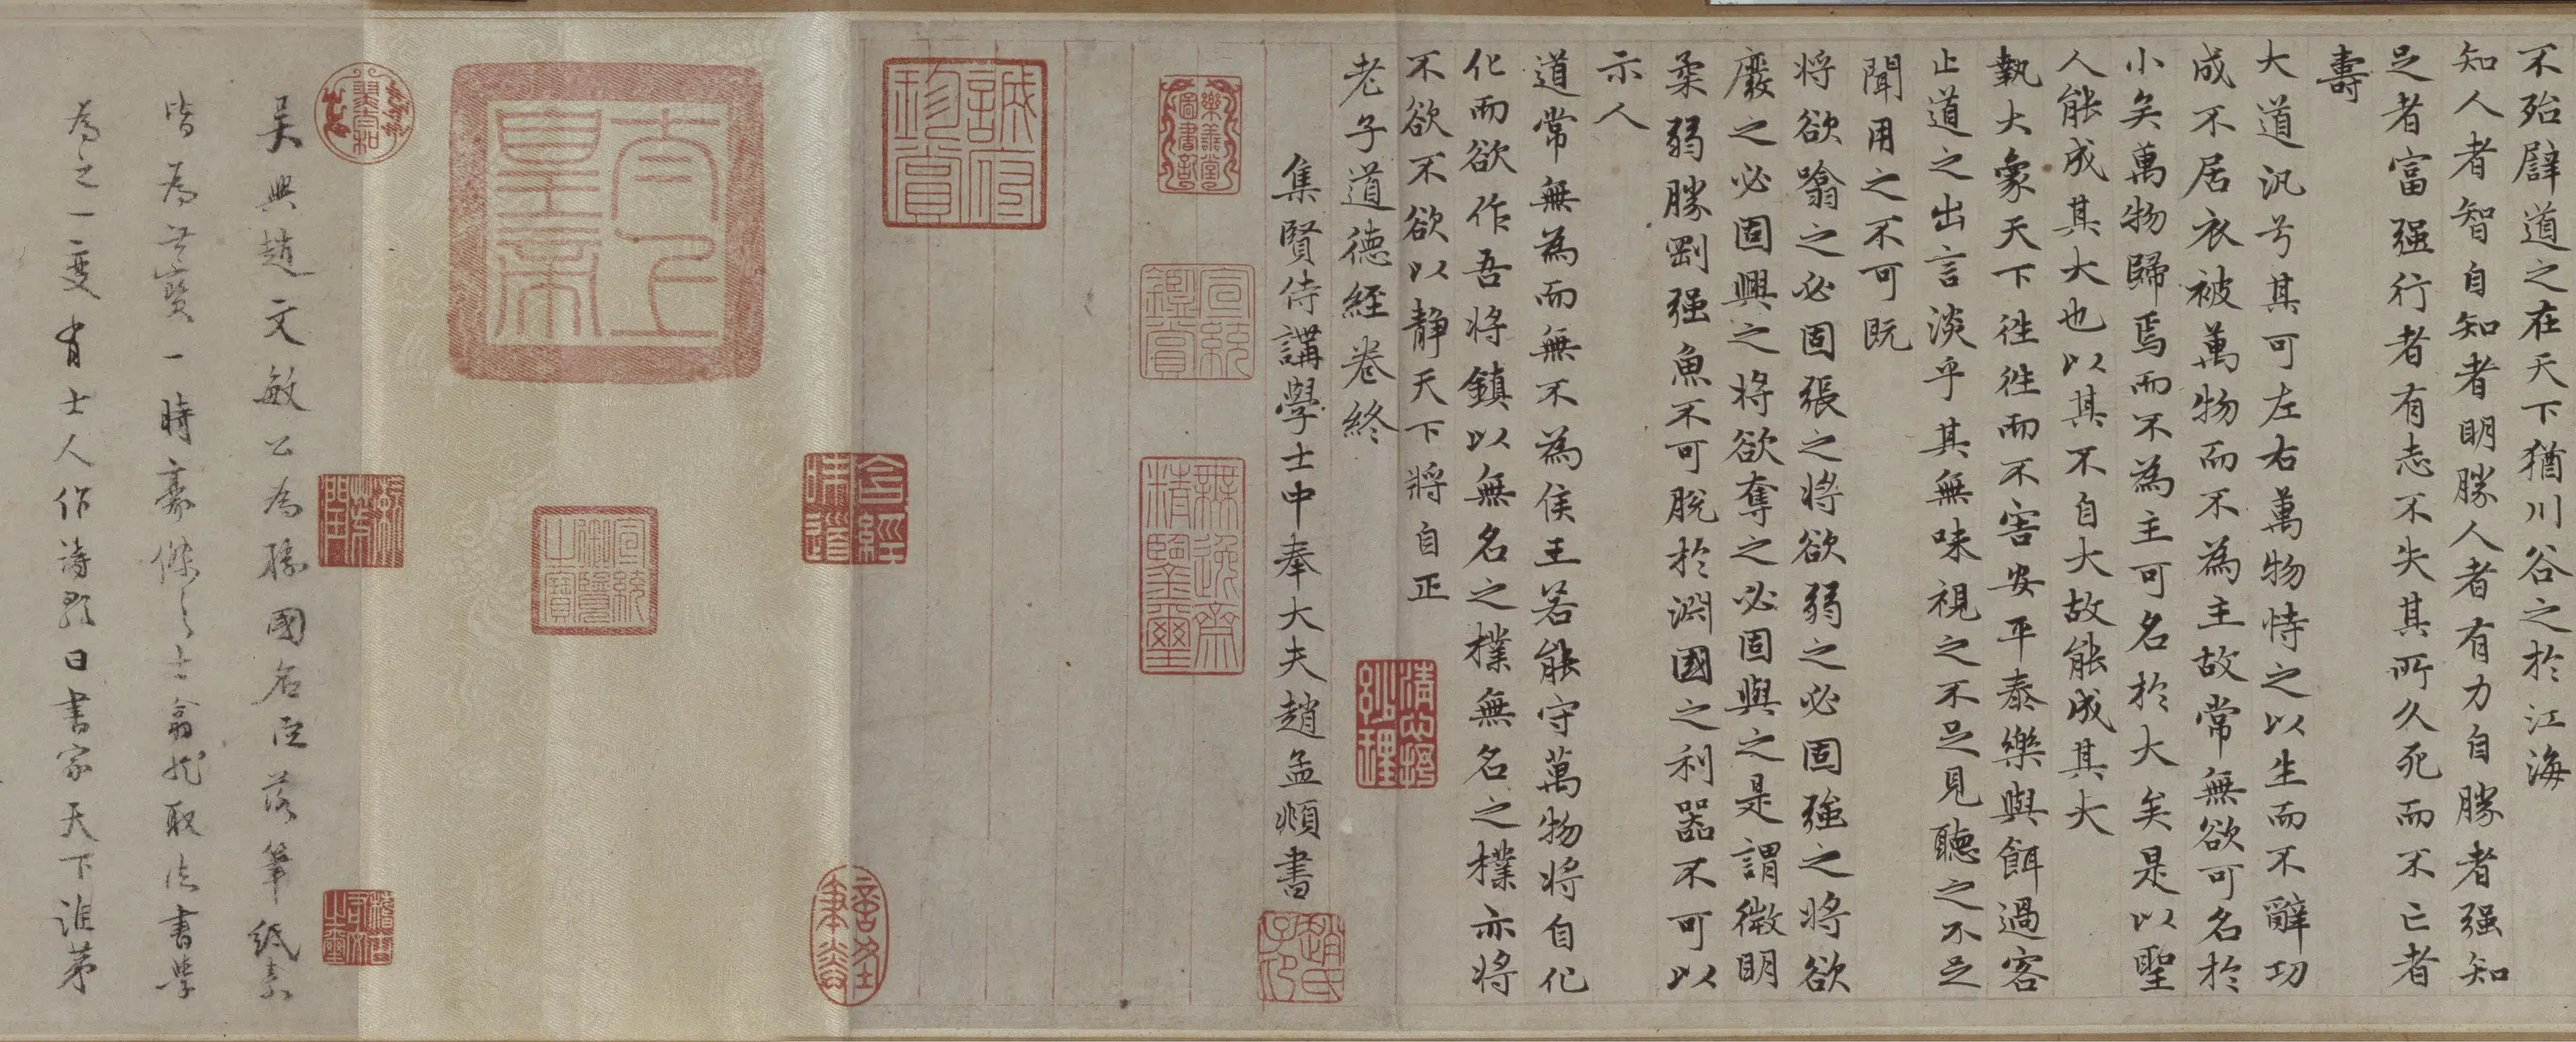 不殆辟道之在天下猶川谷之於江海
知人者智自知者明勝人者有力自勝者强知
足者富强行者有志不失其所久死而不亡者
壽
大道汎兮其可左右萬物恃之以生而不辭功
成不居衣被萬物而不為主故常無欲可名於
小矣萬物歸焉而不為主可名於大矣是以聖
人能成其大也以其不自大故能成其大
執大象天下徃徃而不害安平泰樂與餌過客
止道之出言淡乎其無味視之不足見聽之不足
聞用之不可既
將欲噏之必固張之將欲弱之必固強之將欲
廢之必固興之將欲奪之必固與之是謂微明
柔弱勝剛强魚不可脫於淵國之利器不可以
示人
道常無為而無不為侯王若能守萬物將自化
化而欲作吾將鎮以無名之樸無名之樸亦將
不欲不欲以靜天下將自正
老子道德經卷終
集賢侍講學士中奉大夫趙孟頫書
趙氏子印
清心抒妙理
樂善堂圖書記
宣統鑑賞
無逸齋精鑒璽
誠府珍賞
含經味道
太上皇帝
宣統御覽之寶
吳興趙文敏公為勝國名臣落筆紙素
皆為世寶一時豪傑之士翕然取法書學
為之一變有士人作詩影曰書家天下誰茅